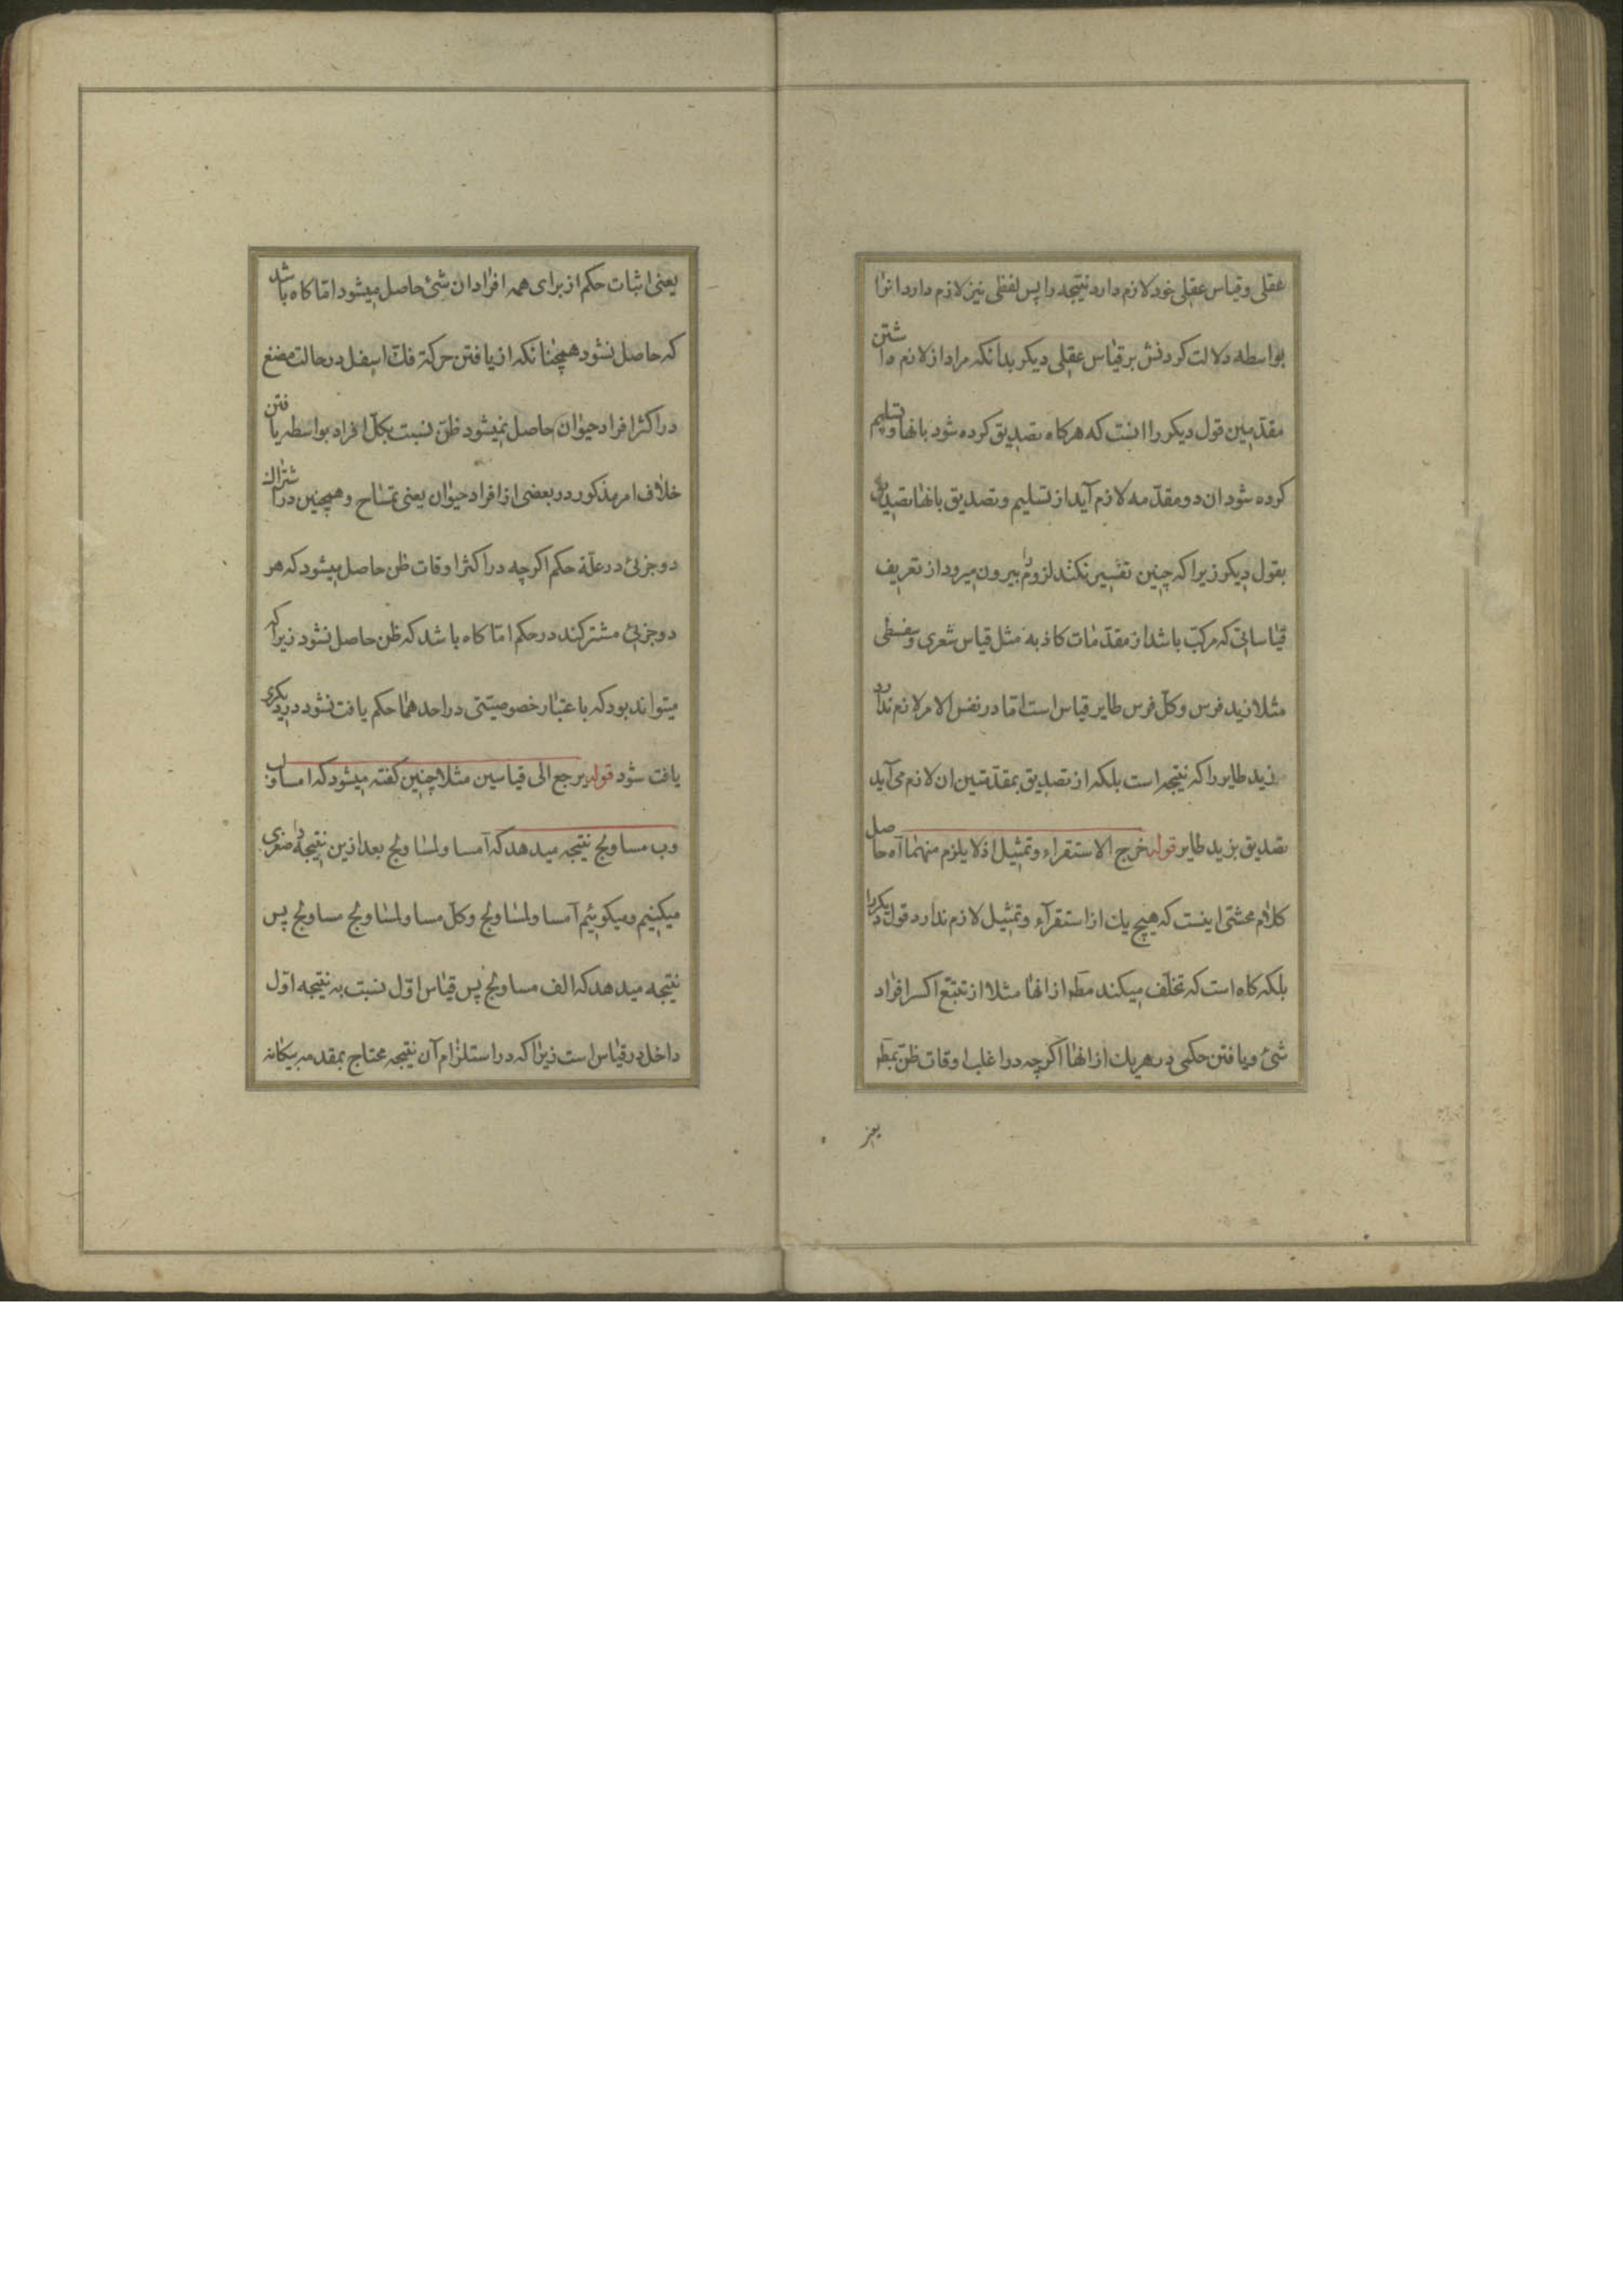 عقلی وقیاس عقلی خود لازم دارد نتیجه را پس لفظی نیز لازم دارد انرا
بواسطه دلالت کردنش بر قیاس عقلی دیکر بدانکه مراد از لازم داشتن
مقدّمتین قول دیکر را انست که هرکاه تصدیق کرده شود بانها وتسلیم
کرده شود ان دو مقدّمه لازم آید از تسلیم وتصدیق بانها تصدیق
بقول دیکر زیرا که چنین تفسیر نکنند لزوم را بیرون میرود از تعریف
قیاساتی که مرکب باشد از مقدّمات کاذبه مثل قیاس شعری وسفسطی
مثلا زید فرس وکلّ فرس طایر قیاس است امّا در نفس الامر لازم ندارد
زید طایر را که نتیجه است بلکه از تصدیق بمقدّمتین ان لازم می آید
تصدیق بزید طایر قوله خرج الاستقراء وتمثیل اذ لا یلزم منهما آه حاصل
کلام محشّی اینست که هیچ یك از استقرآء وتمثیل لازم ندارد قول دیکر را
بلکه کاه است که تخلّف میکند مطه از انها مثلا از تتبّع اکسر افراد
شئ ویافتن حکمی در هریك از انها اکرچه در اغلب اوقات ظنّ بمطه
یعنی
یعنی اثبات حکم از برای همه افراد ان شئ حاصل میشود امّا کاه باشد
که حاصل نشود همچنانکه از یافتن حرکة فك اسفل در حالت مضغ
در اکثر افراد حیوان حاصل نمیشود ظنّ نسبت بکلّ افراد بواسطه یافتن
خلاف امر مذکور در بعضی از افراد حیوان یعنی تمساح وهمچنین در اشتراك
دو جزئی در علّة حکم اکرچه در اکثر اوقات ظن حاصل میشود که هر
دو جزئی مشترکند در حکم امّا کاه باشد که ظن حاصل نشود زیرا که
میتواند بود که باعتبار خصوصیّتی در احدهما حکم یافت نشود در دیکری
یافت شود قوله یرجع الی قیاسین مثلا چنین کفته میشود که ا مساو لب
وب مساو لج نتیجه میدهد که آ مساو لمساو لج بعد ازین نتیجه را صغری
میکنیم ومیکوئیم آ مساو لمساو لج وکلّ مساو لمساو لج مساو لج پس
نتیجه میدهد که الف مساو لج پس قیاس اوّل نسبت به نتیجه اوّل
داخل در قیاس است زیرا که در استلزام آن نتیجه محتاج بمقدمه بیکانه